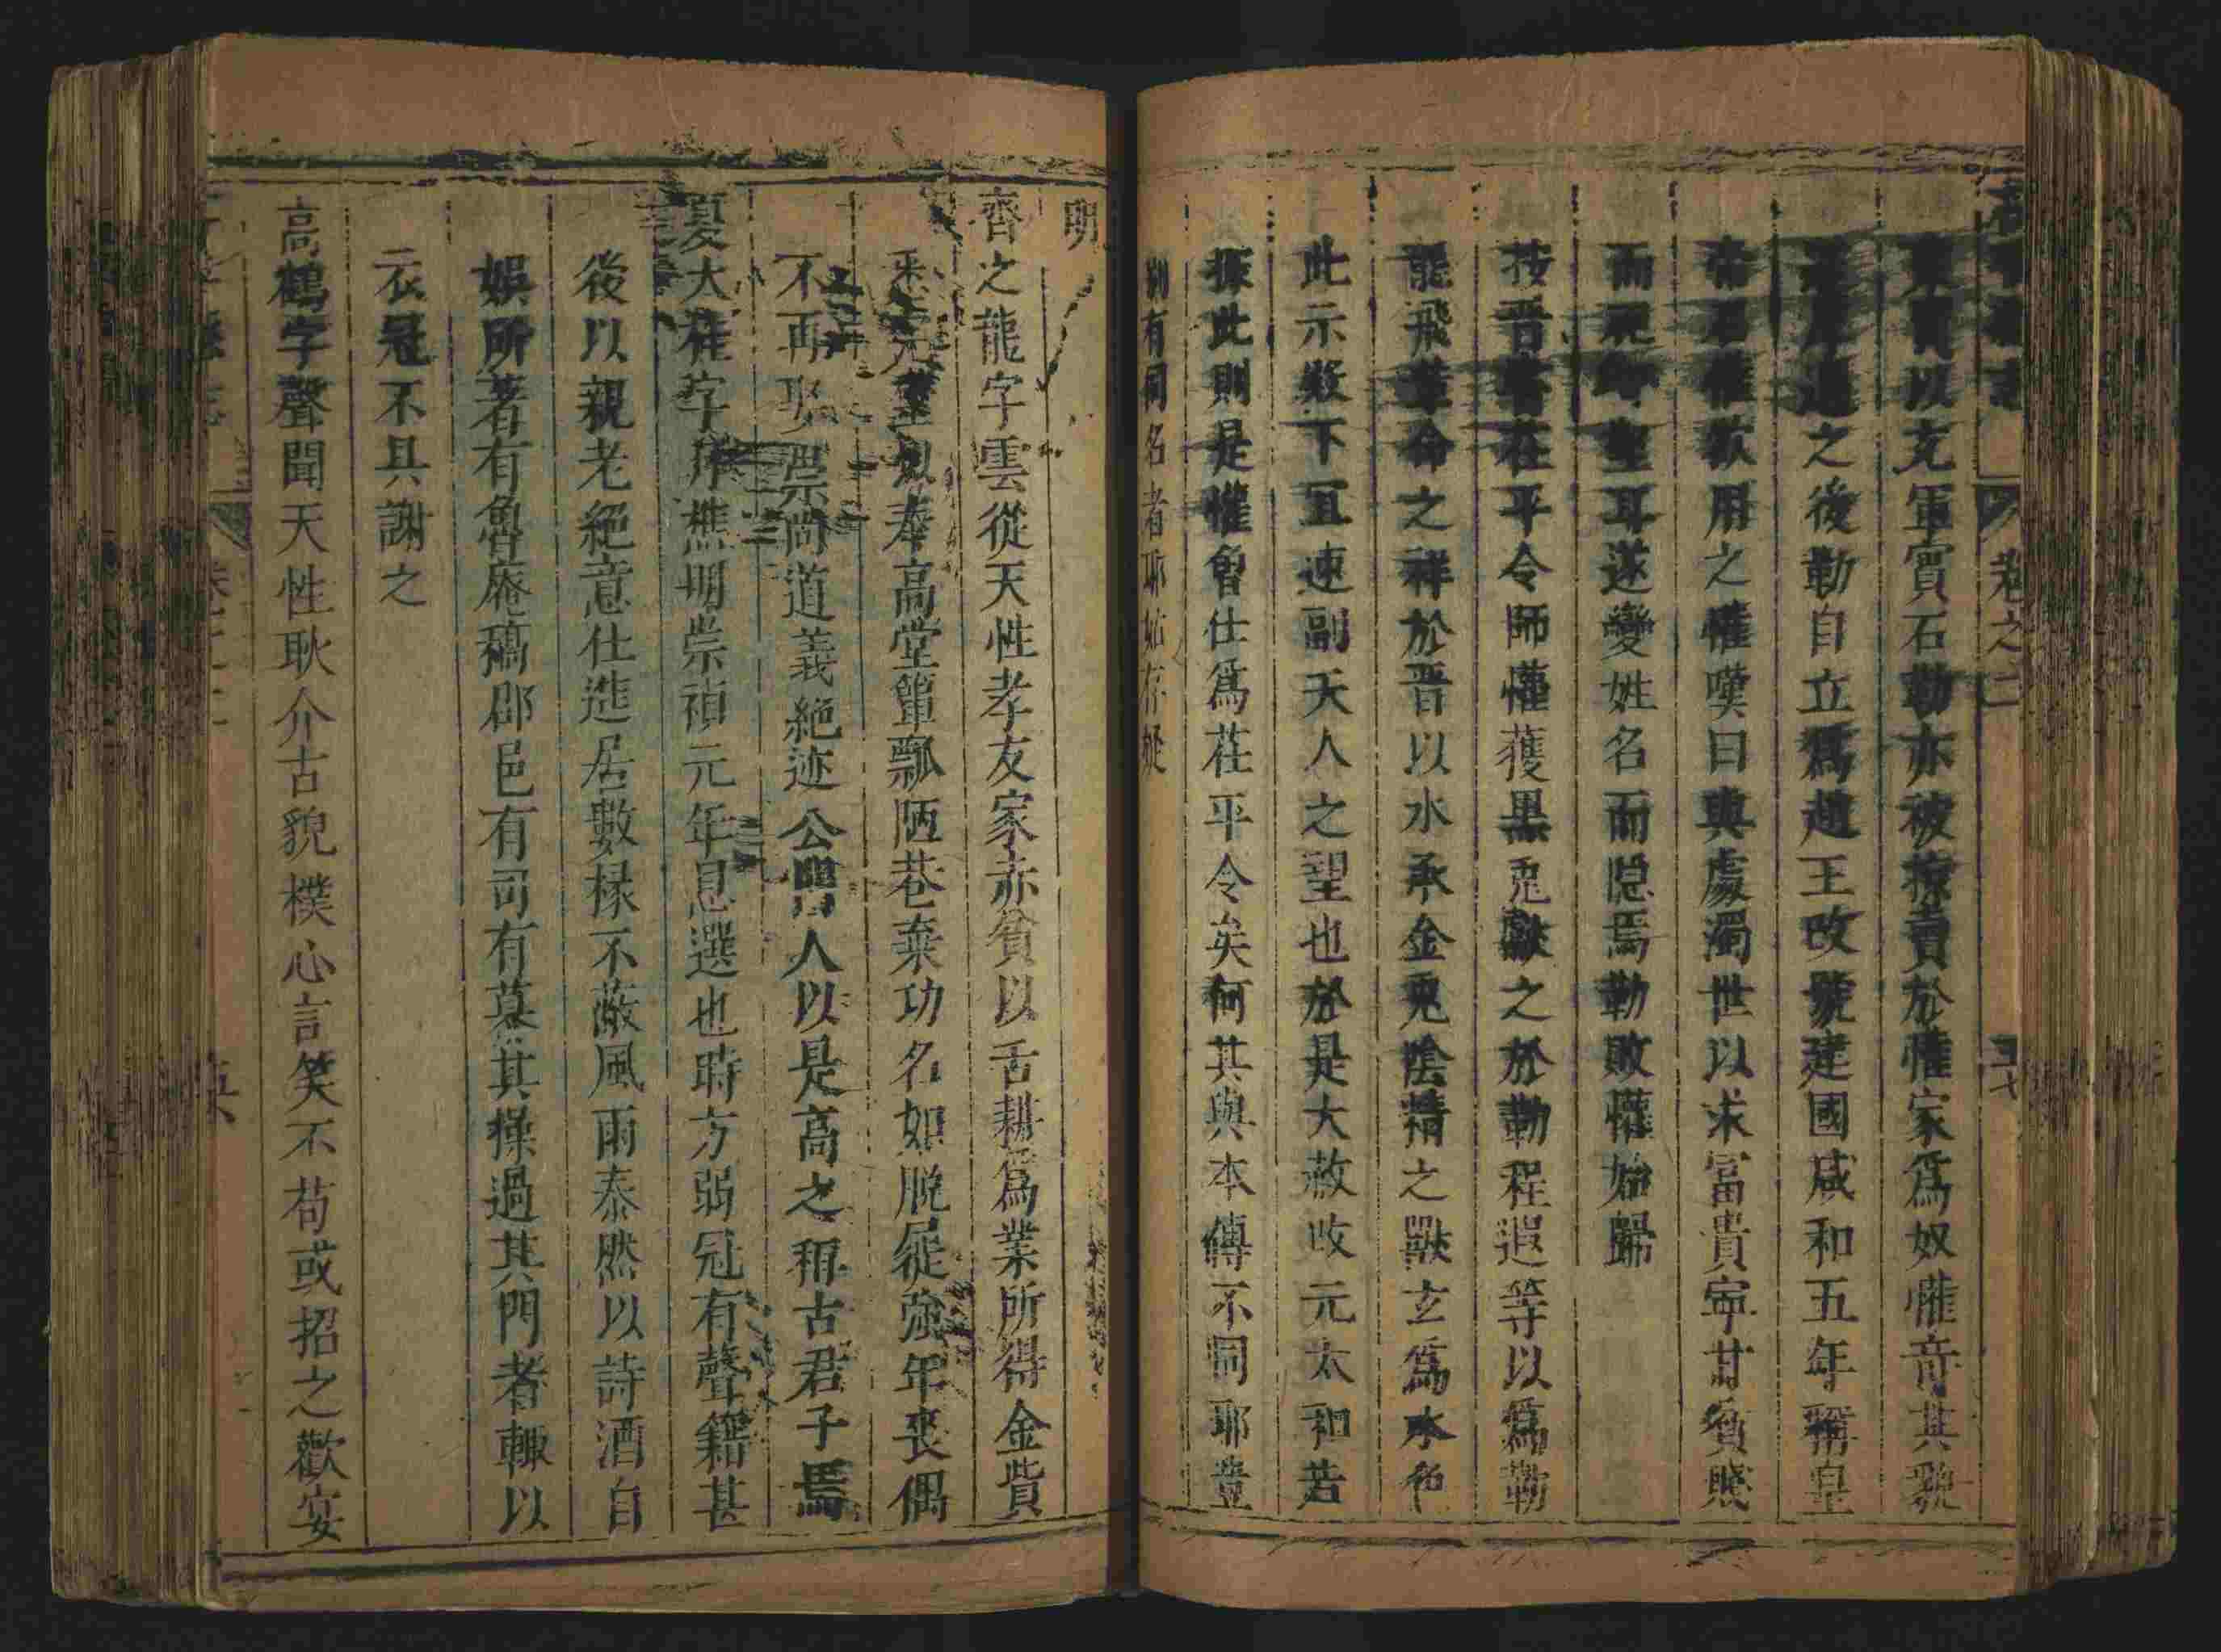 卷之二
以充軍實石勒亦被掠賣於懽家爲奴懽竒其貌
之後勒自立爲趙王改號建國咸和五年稱皇
帝召懽欲用之懽嘆曰與處濁世以求富貴寧甘貧賤
而耳遂變姓名而隠焉勒敗懽始歸
按晋書在平令師懽獲黒兎獻之於勒程遐等以爲勒
龍飛革命之祥於晋以水承金兎陰精之獸玄爲水色
此示殿下宜速副天人之望也於是大赦改元太和若
據此則是懽曾仕爲茌平令矣何其與本傳不同耶豈
別有同名者耶姑存疑
明
齊之龍字雲從天性孝友家赤貧以舌耕爲業所得金貲
悉完奉高堂簞瓢陋巷棄功名如脫屣強年丧偶
不再娶崇尚道義絶迹公門人以是高之稱古君子焉
夏大字樵明崇禎元年恩選也時方弱冠有聲籍甚
後以親老絕意仕進居數椽不蔽風雨泰然以詩酒自
娛所著有魯菴稿郡邑有司有慕其操過其門者輙以
衣冠不具謝之
高鶴字聲聞天性耿介古貌樸心言笑不苟或招之歡宴